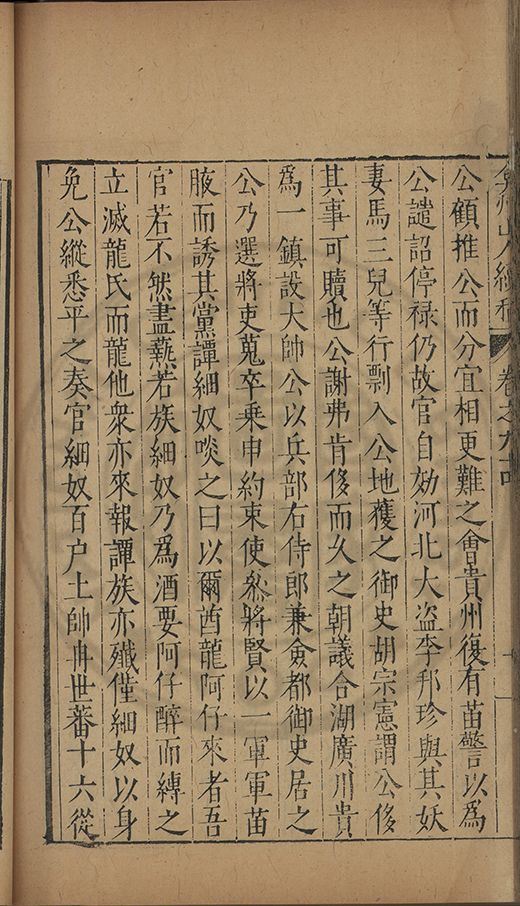 弇州山人續稿 卷之九十四 十一
公顧推公而分宜相更難之會貴州復有苗警以爲
公譴詔停祿仍故官自効河北大盜李邦珍與其妖
妻馬三兒等行剽入公地獲之御史胡宗憲謂公侈
其事可贖也公謝弗肯侈而久之朝議合湖廣川貴
爲一鎮設大帥公以兵部右侍郎兼僉都御史居之
公乃選將吏蒐卒乘申約束使叅將賢以一軍軍苗
腋而誘其黨譚細奴啖之曰以爾酋龍阿仔來者吾
官若不然盡爇若族細奴乃爲酒要阿仔醉而縛之
立滅龍氏而龍他衆亦來報譚族亦殲僅細奴以身
免公縱悉平之奏官細奴百户土帥冉世蕃十六從